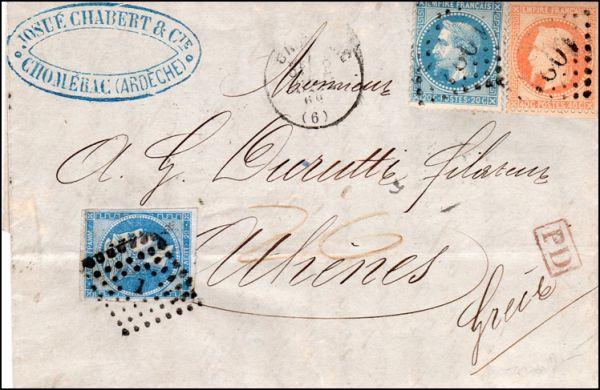 JOSUÉ CHABERT & CIE
CHOMÉRAC (ARDÈCHE)
EMPIRE FRANÇAIS
20C POSTES 20C
EMPIRE FRANÇAIS
40C POSTES 40C
(6)
Monsieur
A. G. Durutti filateur
Athènes
Grèce
PD